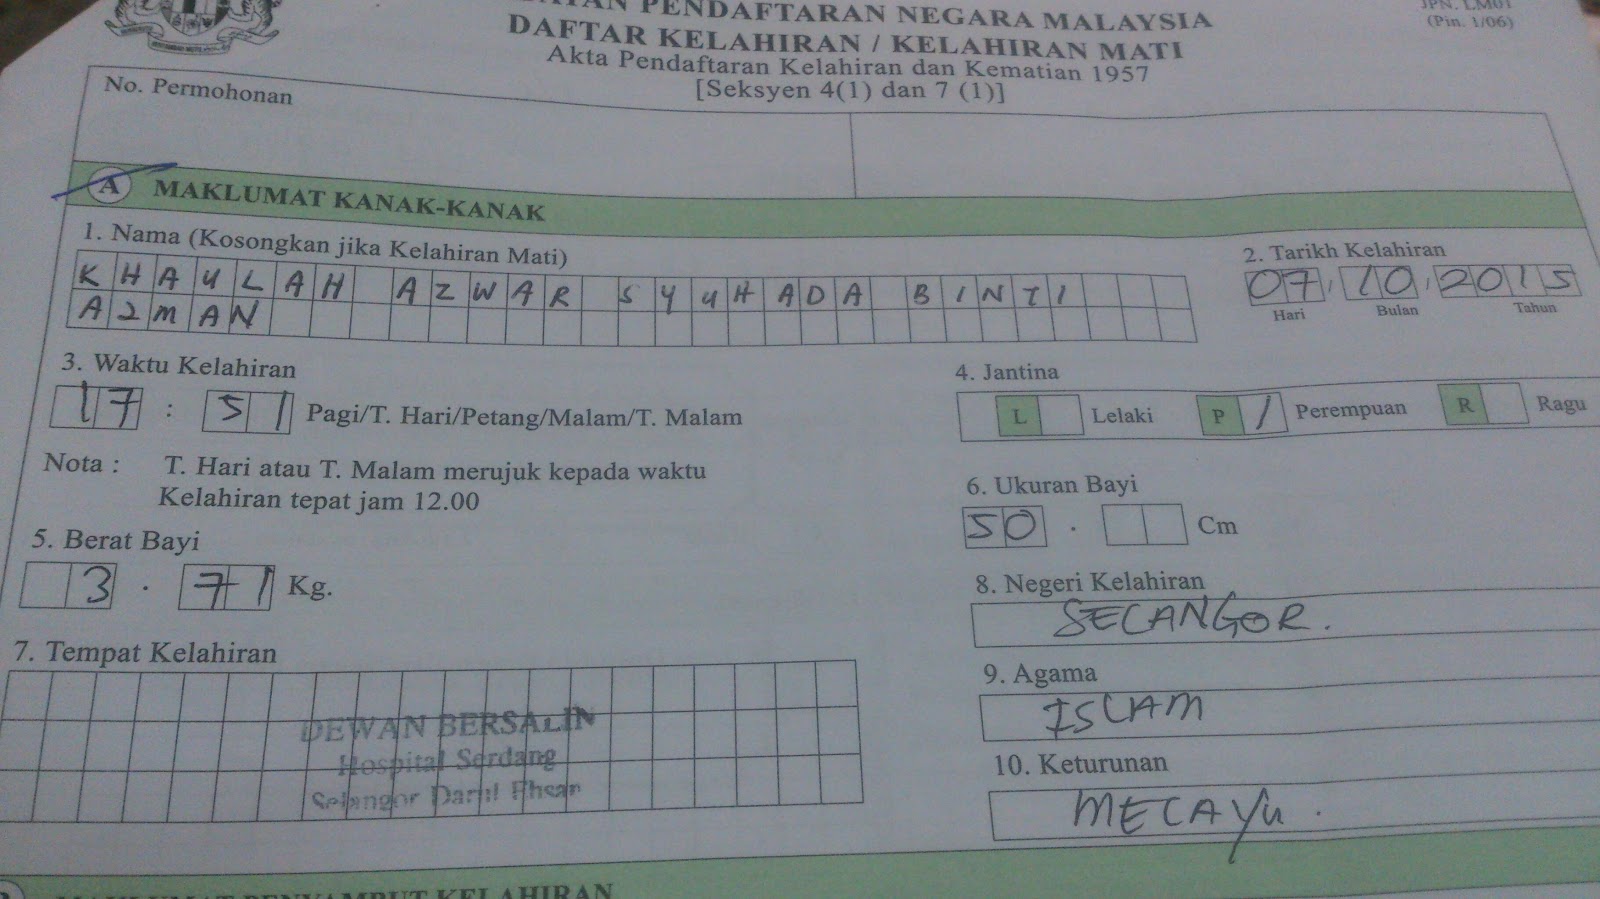 PENDAFTARAN NEGARA MALAYSIA
JPN. LM01
(Pin. 1/06)
DAFTAR KELAHIRAN / KELAHIRAN MATI
Akta Pendaftaran Kelahiran dan Kematian 1957
[Seksyen 4(1) dan 7 (1)]
No. Permohonan
A MAKLUMAT KANAK-KANAK
1. Nama (Kosongkan jika Kelahiran Mati)
KHAULAH AZWAR SYUHADA BINTI
AZMAN
2. Tarikh Kelahiran
07, 10, 2015
Hari Bulan Tahun
3. Waktu Kelahiran
17 : 51 Pagi/T. Hari/Petang/Malam/T. Malam
Nota : T. Hari atau T. Malam merujuk kepada waktu
Kelahiran tepat jam 12.00
4. Jantina
L Lelaki P / Perempuan R Ragu
5. Berat Bayi
3 . 71 Kg.
6. Ukuran Bayi
50 . Cm
7. Tempat Kelahiran
DEWAN BERSALIN
Hospital Serdang
Selangor Darul Ehsan
8. Negeri Kelahiran
SELANGOR.
9. Agama
ISLAM
10. Keturunan
MELAYU.
MAKLUMAT PENYAMBUT KELAHIRAN